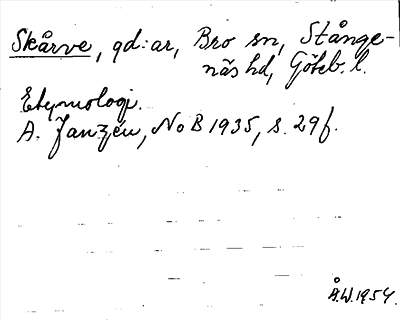 Skårve, gd:ar, Bro sn, Stånge-
näs hd, Göteb. l.
Etymologi.
A. Janzén, NoB 1935, s. 29f.
Å.W. 1954.